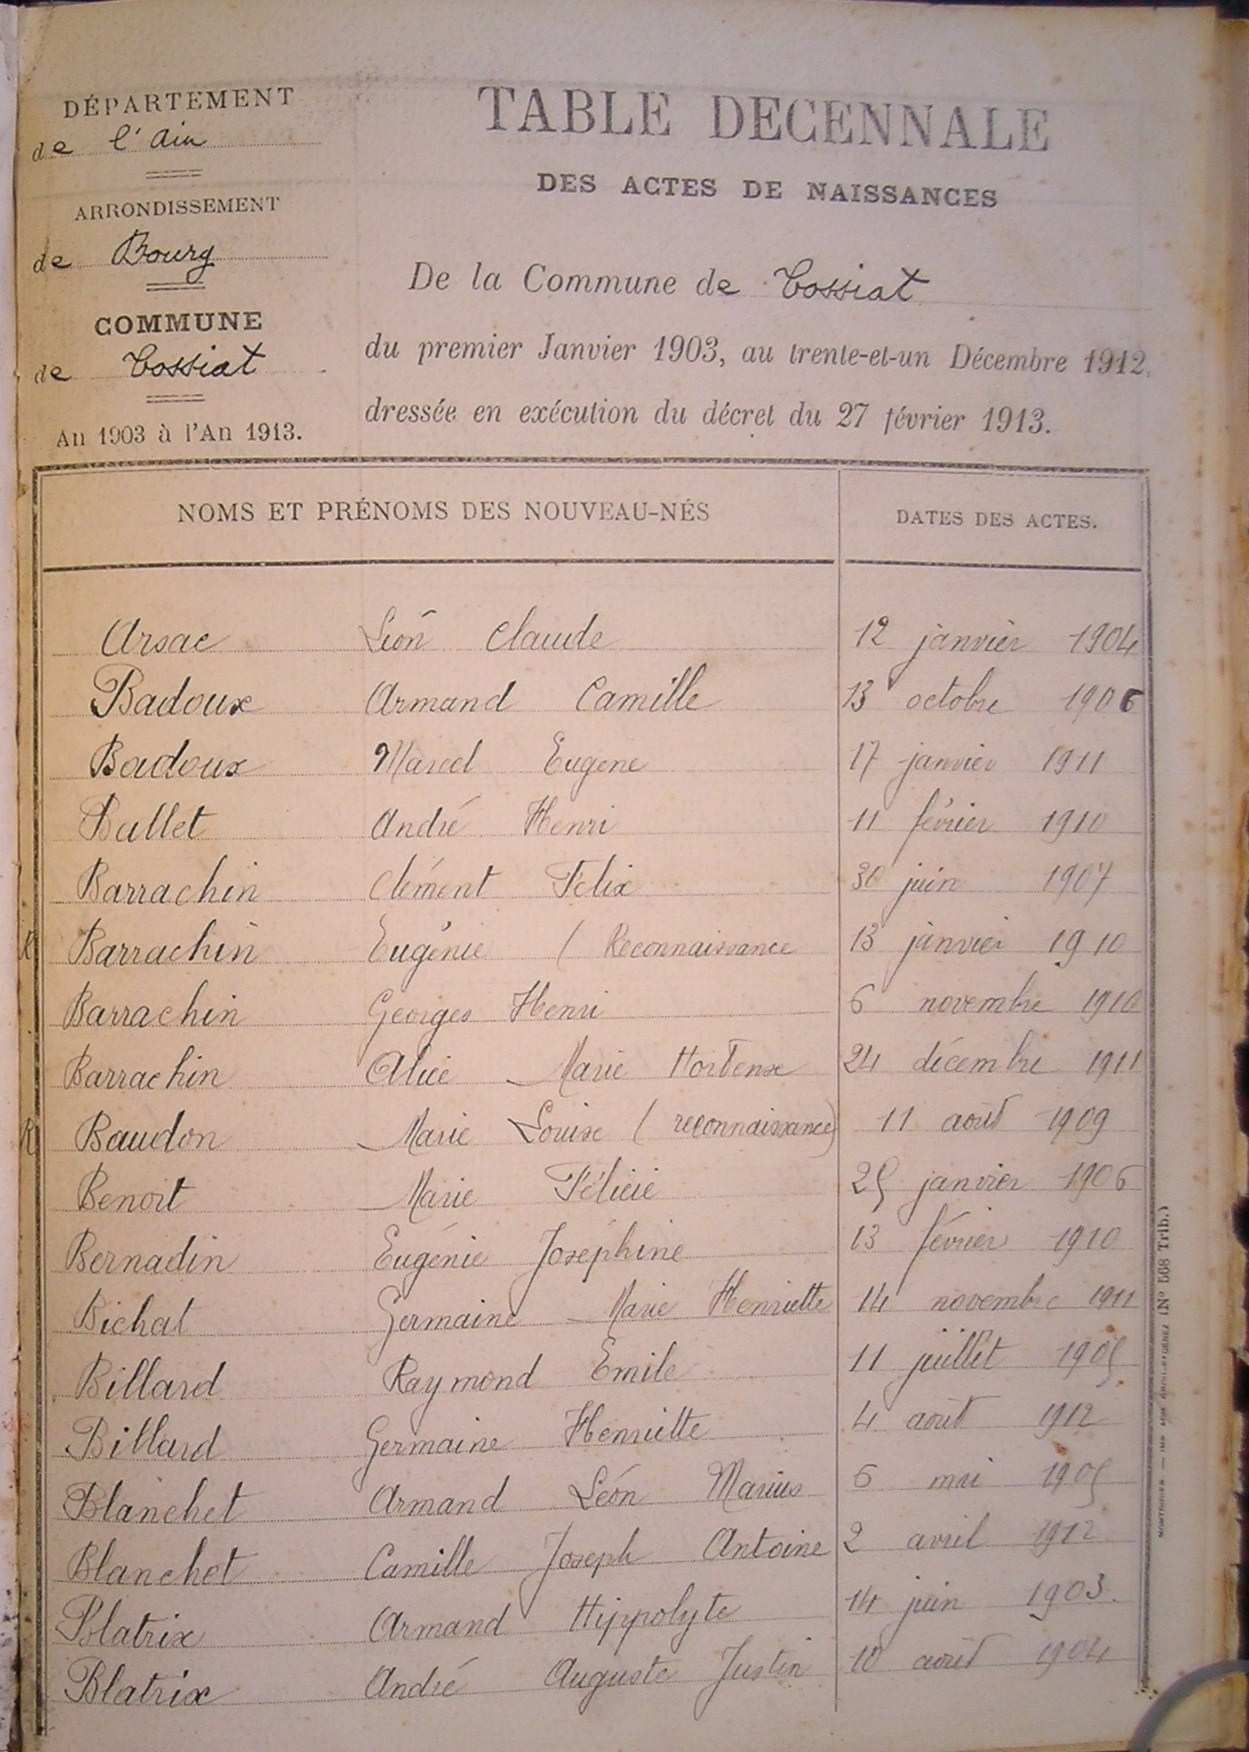 DÉPARTEMENT
de l'Ain
ARRONDISSEMENT
de Bourg
COMMUNE
de Tossiat
An 1903 à l'An 1913.
TABLE DECENNALE
DES ACTES DE NAISSANCES
De la Commune de Tossiat
du premier Janvier 1903, au trente-et-un Décembre 1912,
dressée en exécution du décret du 27 février 1913.
NOMS ET PRÉNOMS DES NOUVEAU-NÉS DATES DES ACTES.
Arsac Léon Claude 12 janvier 1904
Badoux Armand Camille 13 octobre 1906
Badoux Marcel Eugène 17 janvier 1911
Ballet André Henri 11 février 1910
Barrachin Clément Félix 30 juin 1907
R Barrachin Eugénie ( Reconnaissance 13 janvier 1910
Barrachin Georges Henri 6 novembre 1910
Barrachin Alice Marie Hortense 24 décembre 1911
R Baudon Marie Louise ( reconnaissance) 11 août 1909
Benoit Marie Félicie 25 janvier 1906
Bernadin Eugénie Joséphine 13 février 1910
Bichat Germaine Marie Henriette 14 novembre 1911
Billard Raymond Emile 11 juillet 1905
Billard Germaine Henriette 4 août 1912
Blanchet Armand Léon Marius 6 mai 1905
Blanchet Camille Joseph Antoine 2 avril 1912
Blatrix Armand Hippolyte 14 juin 1903.
Blatrix André Auguste Justin 10 août 1904
(No 568 Trib.)